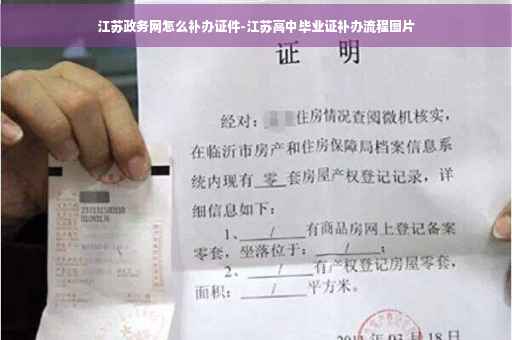 江苏政务网怎么补办证件-江苏高中毕业证补办流程图片
证 明
经对：住房情况查阅微机核实，
在临沂市房产和住房保障局档案信息系
统内现有 零 套房屋产权登记记录，详
细信息如下：
1、 / 有商品房网上登记备案
零套，坐落位于： / ；
2、 / 有产权登记房屋零套，
面积： / 平方米。
03 月 18 日